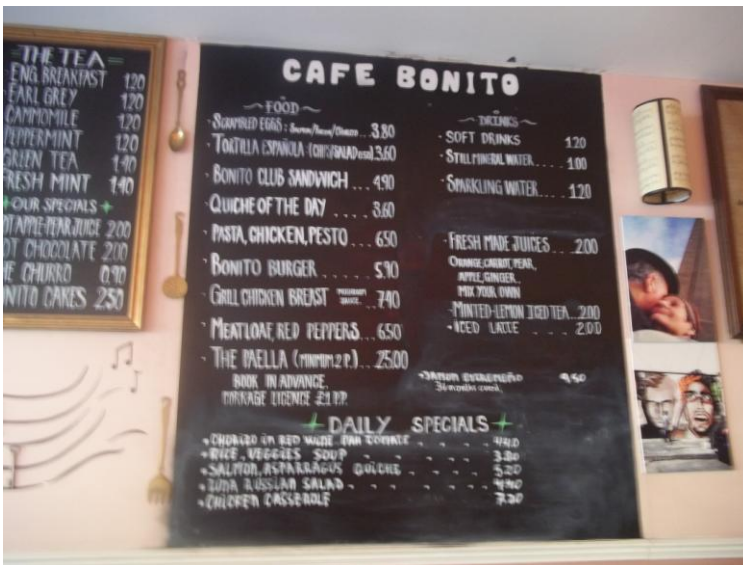 THE TEA
ENG. BREAKFAST 1.20
EARL GREY 1.20
CAMMOMILE 1.20
PEPPERMINT 1.20
GREEN TEA 1.40
FRESH MINT 1.40
OUR SPECIALS
HOT APPLE-PEAR JUICE 2.00
HOT CHOCOLATE 2.00
THE CHURRO 0.90
BONITO CAKES 2.50
CAFE BONITO
FOOD
SCRAMBLED EGGS: SALMON/BACON/CHORIZO ... 3.80
TORTILLA ESPAÑOLA (CHIPS/SALAD 3.60
BONITO CLUB SANDWICH ... 4.90
QUICHE OF THE DAY .... 3.60
PASTA, CHICKEN, PESTO .... 6.50
BONITO BURGER ..... 5.90
GRILL CHICKEN BREAST 7.40
MEATLOAF, RED PEPPERS... 6.50
THE PAELLA (MINIMUM 2 P.) ...25.00
BOOK IN ADVANCE.
CORKAGE LICENCE £1 P.P.
DRINKS
SOFT DRINKS 1.20
STILL MINERAL WATER.... 1.00
SPARKLING WATER.... 1.20
FRESH MADE JUICES ... 2.00
ORANGE, CARROT, PEAR,
APPLE, GINGER..
MIX YOUR OWN
MINTED-LEMON ICED TEA...2.00
ICED LATTE . . . 2.00
JAMON EXTREMEÑO 9,50
36 months cured
DAILY SPECIALS
CHORIZO IN RED WINE. PAN TOMATE . . . 4.40
RICE, VEGGIES SOUP . . . . 3.80
SALMON, ASPARRAGUS QUICHE . . . 5.20
TUNA RUSSIAN SALAD . . . . . 4.40
CHICKEN CASSEROLE 7.20